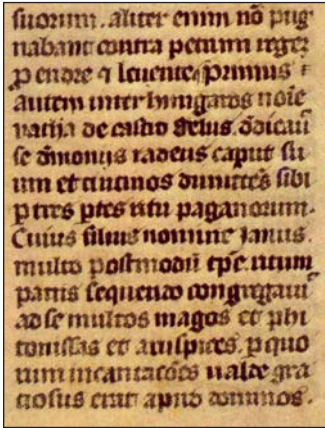 suorum. aliter enim nō pug
nabant contra petrum regeʒ
ꝑ endre ⁊ leuente. Primus
autem inter hungaros noīe
vatha de castro Belus. dēdicauit
se dēmonijs radens caput su
um et cincinos dimittēs sibi
ꝑ tres ꝑtes ritu paganorum.
Cuius filius nomine Janus.
multo postmodū tꝑe. ritum
patris sequendo congregauit
ad se multos magos et phi
tonissas et aruspices. ꝑ quo
rum incantacōes valde gra
ciosus erat apud dominos.